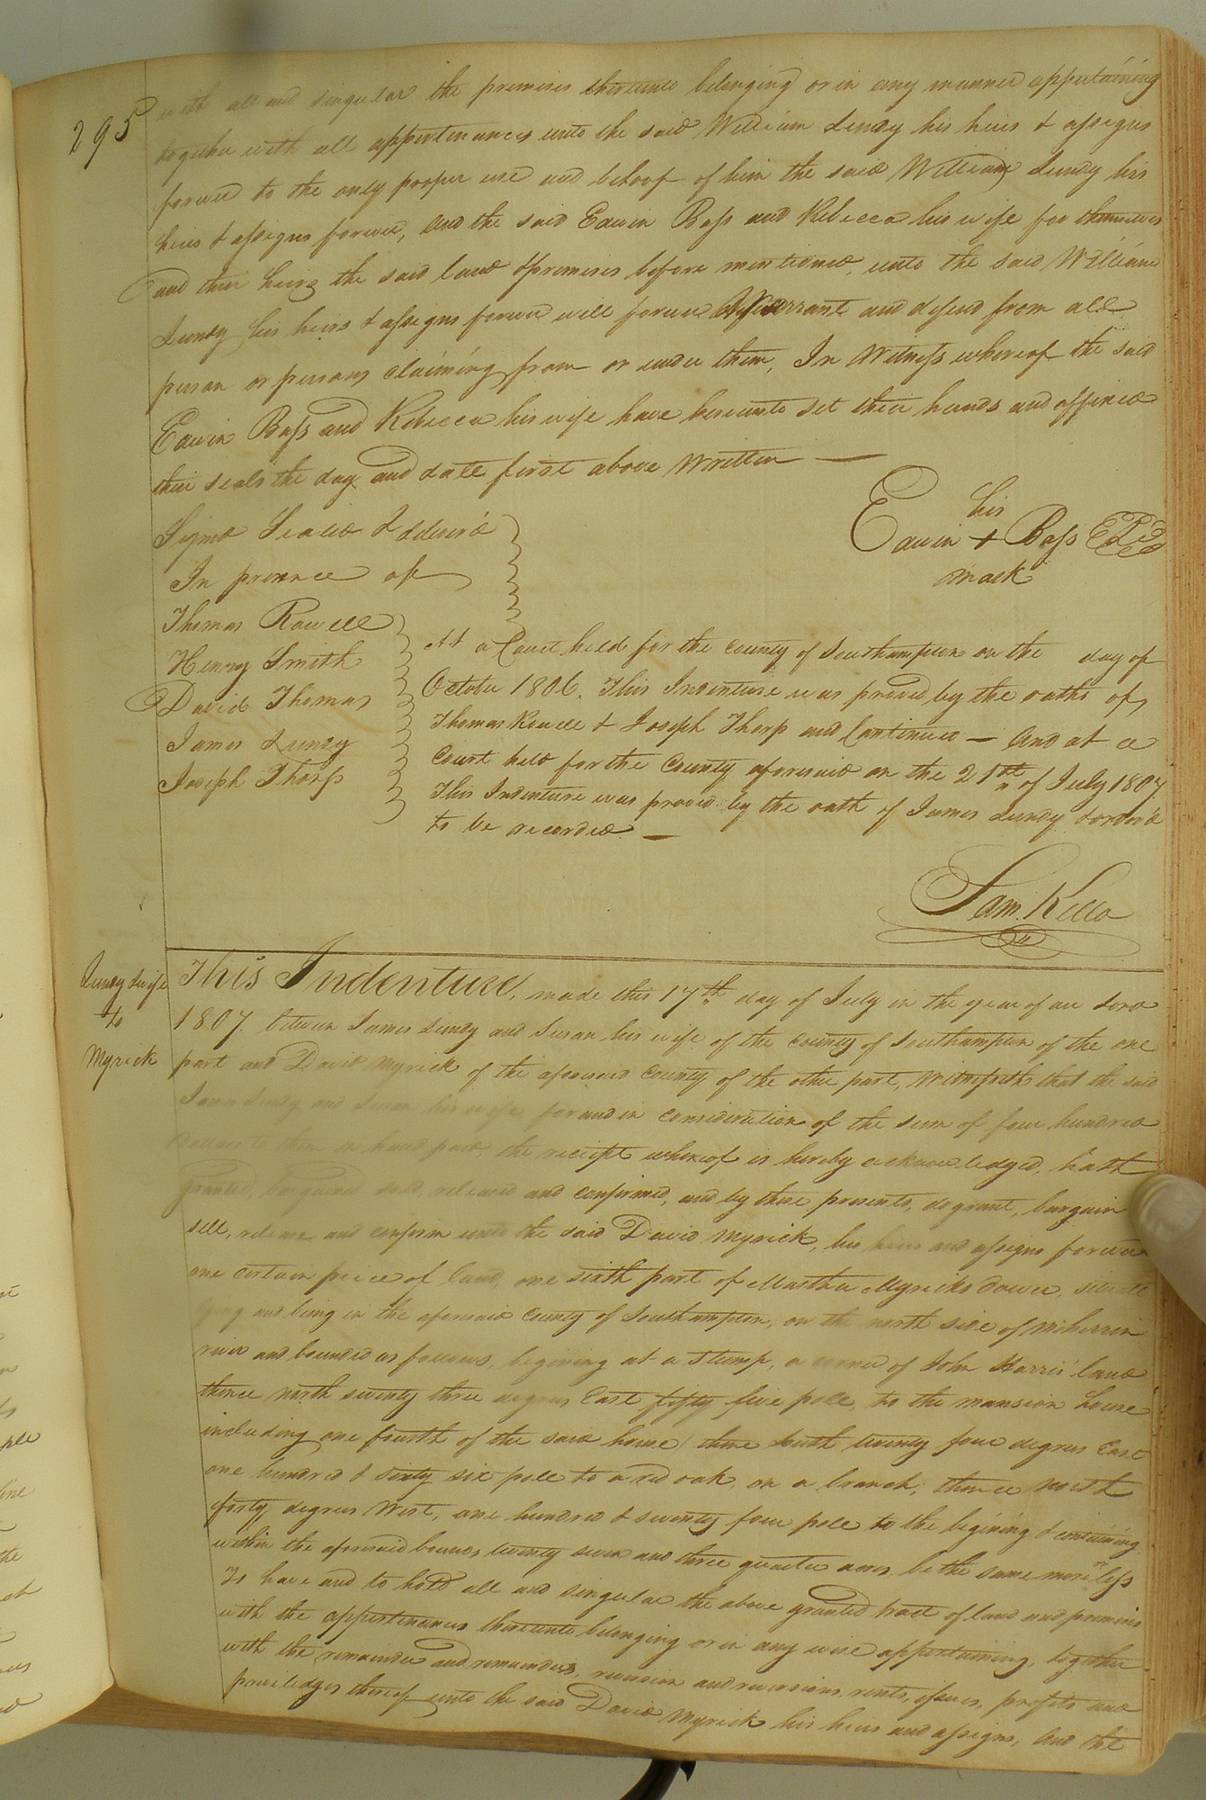 295
with all and singular the premises thereunto belonging or in any manner appertaining
together with all appertenances unto the said William Lundy his heirs & assigns
forever to the only proper use and behoof of him the said William Lundy his
heirs & assigns forever, and the said Edwin Bass and Rebecca his wife for themselves
and their heirs the said land & premises before mentioned, unto the said William
Lundy his heirs & assigns forever will forever Warrant and defend from all
person or persons claiming from or under them, In Witness whereof the said
Edwin Bass and Rebecca his wife have hereunto set their hands and affixed
their seals the day and date first above Written —
Signd Seald & deliverd
In presence of
his
Edwin + Bass
mark
Thomas Rowell
Henry Smith
David Thomas
James Lundy
Joseph Thorp
At a Court held for the county of Southampton on the day of
October 1806. This Indenture was proved by the oaths of
Thomas Rowell & Joseph Thorp and Continued — And at a
Court held for the County aforesaid on the 21st of July 1807
This Indenture was proved by the oath of James Lundy & ord'd
to be recorded —
Sam. Kello
Lundy & wife
to
Myrick
This Indenture, made this 17th day of July in the year of our Lord
1807. between James Lundy and Susan his wife of the county of Southampton of the one
part and David Myrick of the aforesaid county of the other part, Witnesseth that the said
James Lundy and Susan his wife, for and in consideration of the sum of four hundred
dollars to them in hand paid, the receipt whereof is hereby acknowledged, hath
granted, bargained sold, released and confirmed, and by these presents, do grant, bargain
sell, release and confirm unto the said David Myrick, his heirs and assigns forever
one certain peice of land, one sixth part of Martha Myricks dower, situate
lying and being in the aforesaid County of Southampton, on the north side of Meherrin
river and bounded as follows, begining at a Stump, a corner of John Harris' land
thence north seventy three degrees East fifty five pole, to the mansion house
including one fourth of the said house) thence South twenty four degrees East
one hundred & sixty six pole to a red oak, on a branch; thence north
forty degrees West, one hundred & seventy four pole to the begining & containing
within the aforesaid bounds twenty seven and three quarter acres be the same more or less
To have and to hold all and singular the above granted tract of land and premises
with the appertenances thereunto belonging or in any wise appertaining, together
with the remainder and remainders, reversion and reversions, rents, issues, profits and
priviledges thereof unto the said David Myrick his heirs and assigns, And the